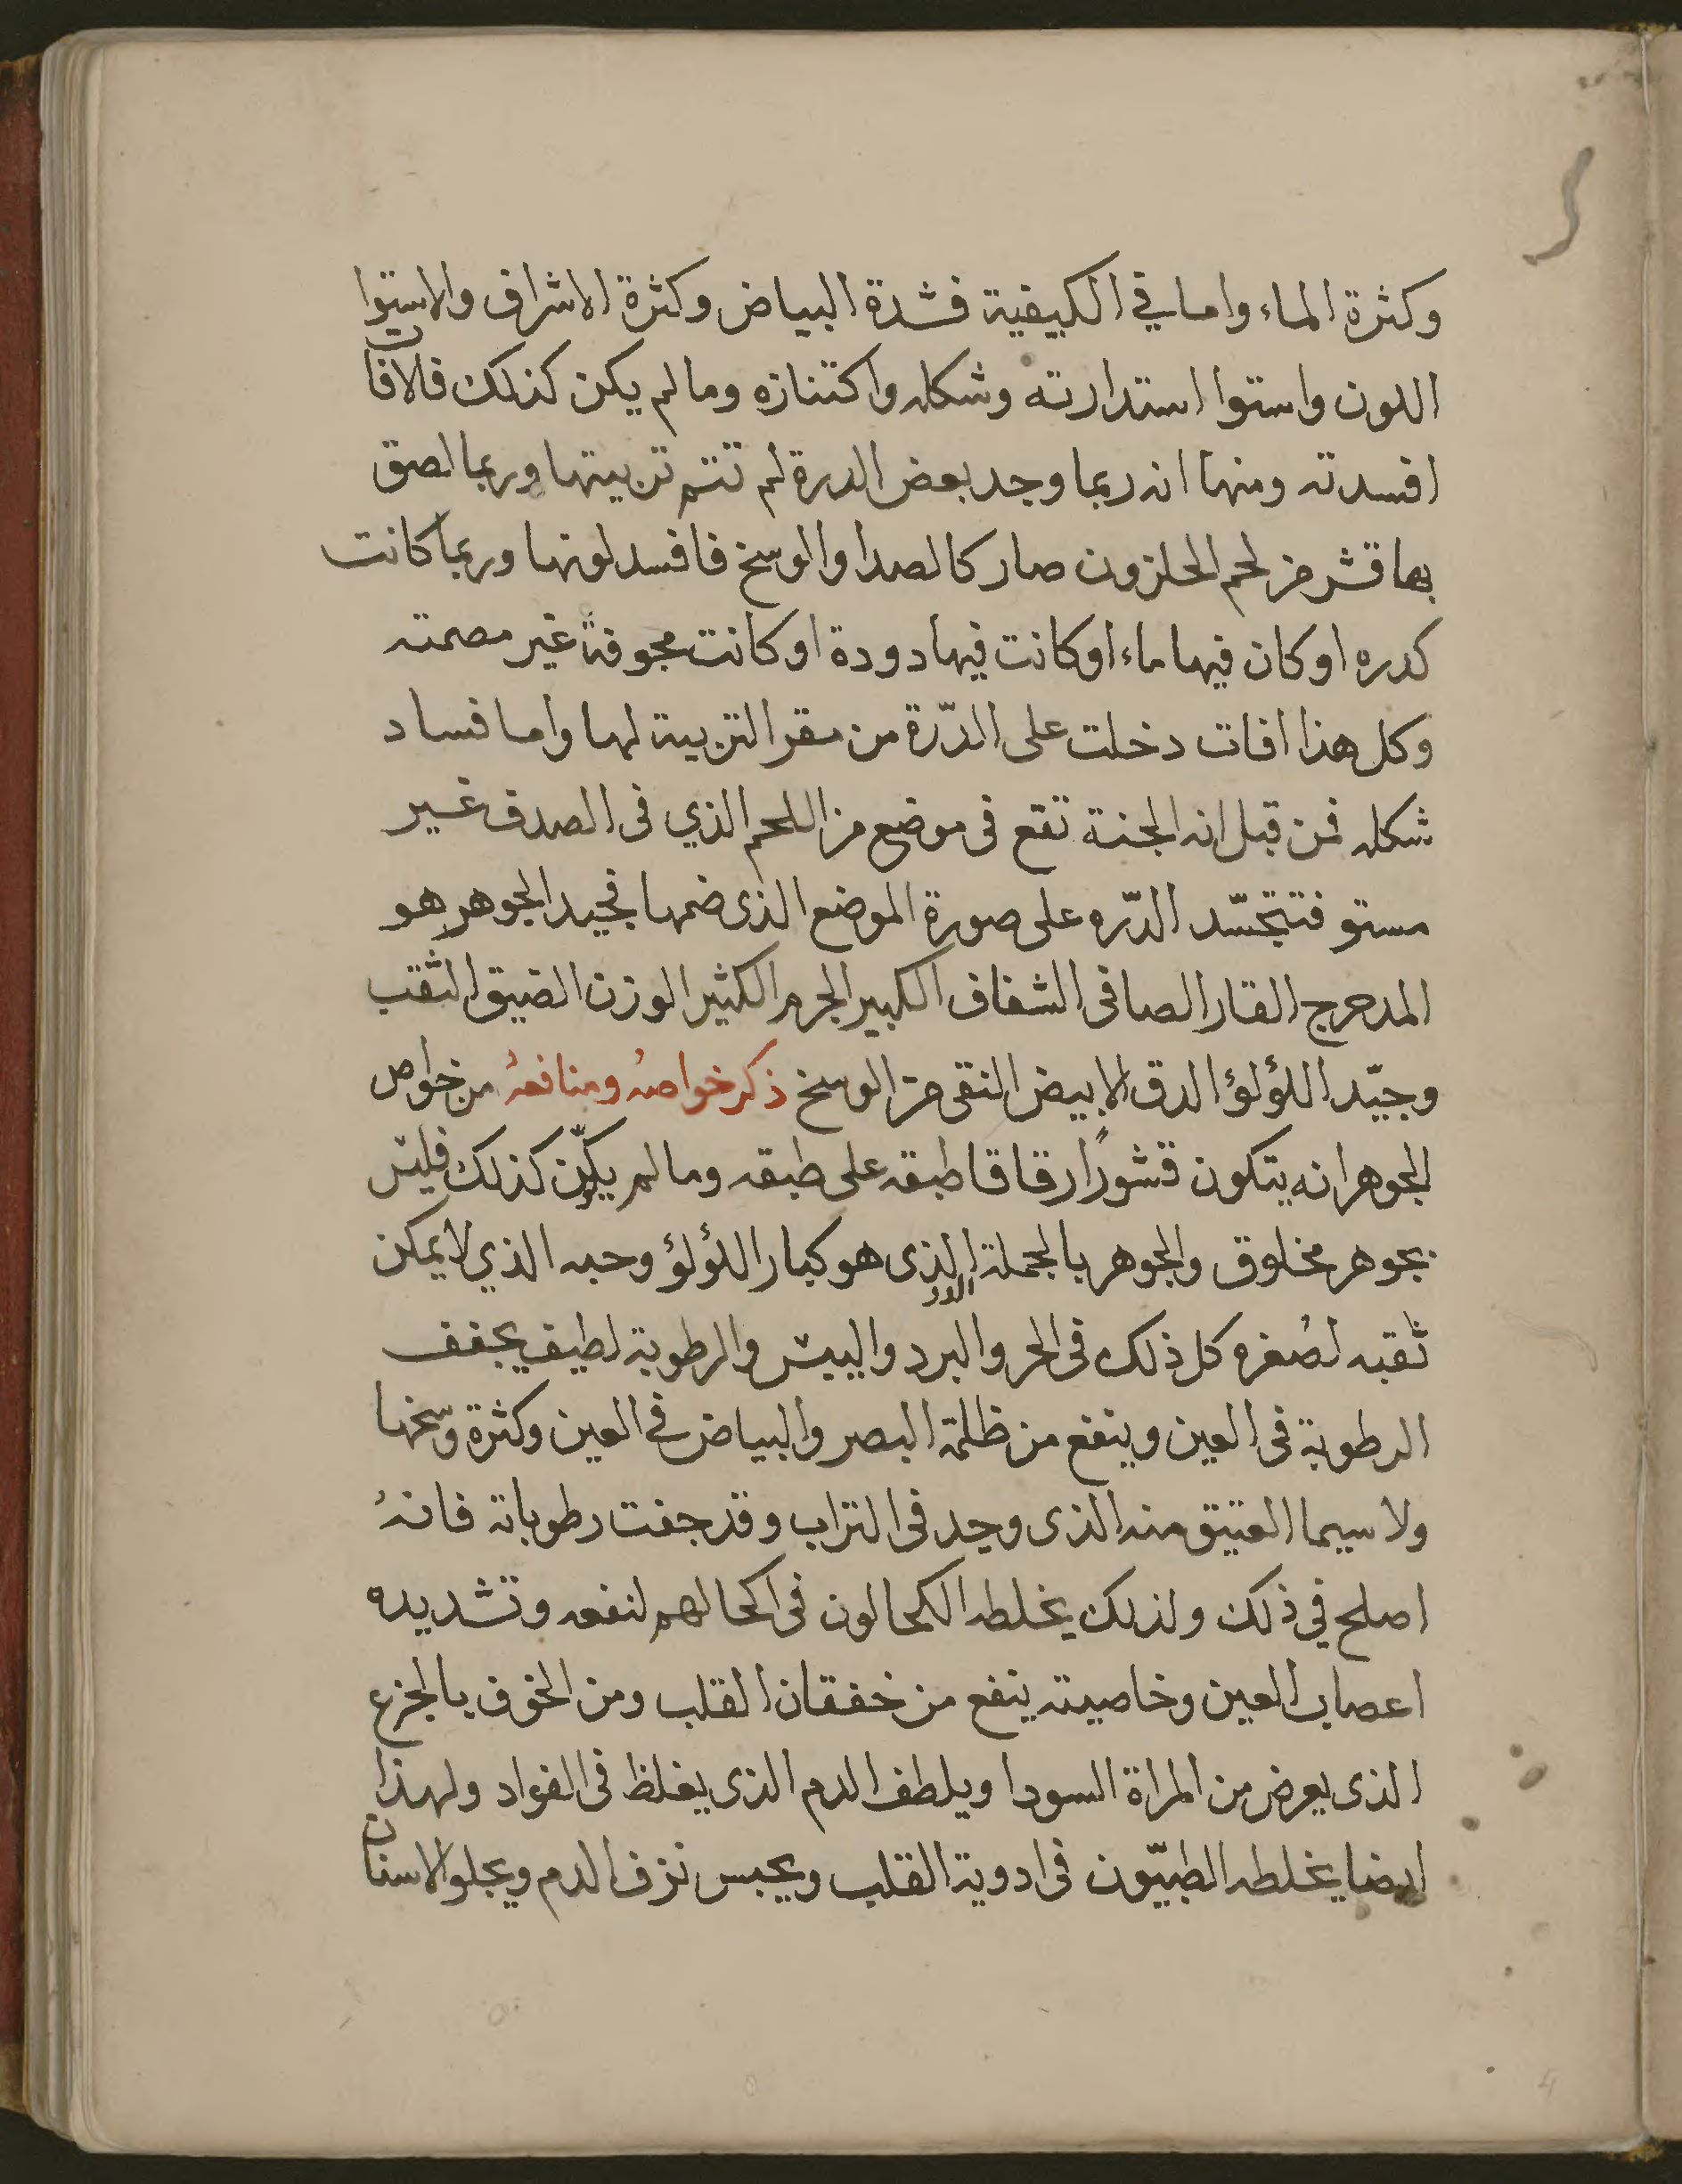 وكثرة الماء واما في الكيفية فشدة البياض وكثرة الاشراق والاستوا
اللون واستوا استدارته وشكله واكتنازه ومالم يكن كذلك فالافات
افسدته ومنها انه ربما وجد بعض الدرة لم تتم تربيتها وربما لصق
بها قشر من لحم الحلزون صار كالصدا والوسخ فافسد لونها وربما كانت
كدره او كان فيها ماء او كانت فيها دودة او كانت مجوفة غير مصمته
وكل هذا افات دخلت على الدّرة من مقر التربية لها واما فساد
شكله فمن قبل انه الجنة تقع فى موضع من اللحم الذي فى الصدف غير
مستو فتتجسّد الدّره على صورة الموضع الذى ضمها فجيد الجوهر هو
المدحرج القار الصافى الشفاف الكبير الجرم الكثير الوزن الضيق الثقب
وجيّد اللؤلؤ الدق الابيض النقى من الوسخ ذكر خواصهُ ومنافعهُ من خواص
الجوهر انه يتكون قشورًا رقاقا طبقه على طبقه ومالم يكن كذلك فليس
بجوهر مخلوق والجوهر بالجملة الذى هو كبار اللؤلؤ وحبه الذي لايمكن
ثقبه لصُغره كل ذلك فى الحر والبرد واليبس والرطوبة لطيف يجفف
الرطوبة فى العين وينفع من ظلمة البصر والبياض في العين وكثرة وسخها
ولا سيما العتيق منه الذى وجد فى التراب وقد جفت رطوباته فانهُ
اصلح في ذلك ولذلك يخلطه الكحالون فى اكحالهم لنفعه وتشديده
اعصاب العين وخاصيته ينفع من خفقان القلب ومن الخوف بالجزع
الذى يعرض من المراة السودا ويلطف الدم الذى يغلظ فى الفواد ولهذا
ايضا يخلطه الطبيّون فى ادوية القلب ويحبس نزف الدم ويجلو الاسنان